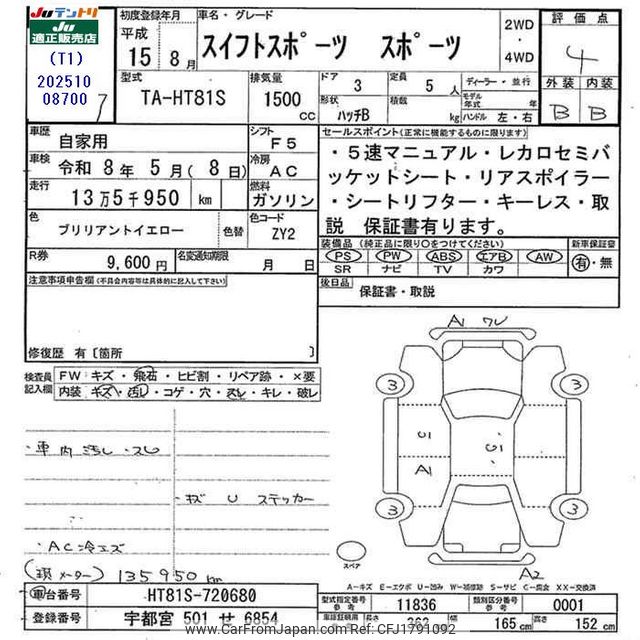 Juテントリ
Ju
適正販売店
(T1)
202510
08700
7
初度登録年月
平成
15年 8月
車名・グレード
スイフトスポーツ スポーツ
2WD
・
4WD
評価点
4
外装 内装
B B
型式
TA-HT81S
排気量
1500
CC
ドア
3
形状
ハッチB
定員
5 人
積載
kg
ディーラー・並行
モデル年式 年
ハンドル 左・右
車歴
自家用
シフト
F5
車検
令和 8年 5月( 8日)
冷房
AC
走行
13万5千950 km
燃料
ガソリン
色
ブリリアントイエロー
色替
色コード
ZY2
R券
9,600円
名変通知期限
月 日
セールスポイント(正常に機能するものに限ります)
・5速マニュアル・レカロセミバ
ッケットシート・リアスポイラー
・シートリフター・キーレス・取
説 保証書有ります。
装備品(純正品に限り○をつけてください)
新車保証書
PS PW ABS エアB AW
SR ナビ TV カワ
有・無
後日品
保証書・取説
注意事項申告欄(不具合内容等は具体的に記入して下さい)
修復歴 有〔箇所 〕
検査員記入欄
FW キズ・飛石・ヒビ割・リペア跡・×要
内装 キズ・汚レ・コゲ・穴・スレ・キレ・破レ
・車内汚レ・スレ
・キズ U ステッカー
・AC冷エズ
(現メーター) 135950km
A1 ワレ
3
3
3
3
U1
A1
U1
スペア
A2
A=キズ E=エクボ U=凹み W=補修跡 S=サビ C=腐食 XX=交換済
車台番号
HT81S-720680
登録番号
宇都宮 501 せ 6854
型式指定番号
参考
11836
類別区分番号
参考
0001
長さ
362
165 cm
高さ
152 cm
CarFromJapan.com Ref: CFJ1791092